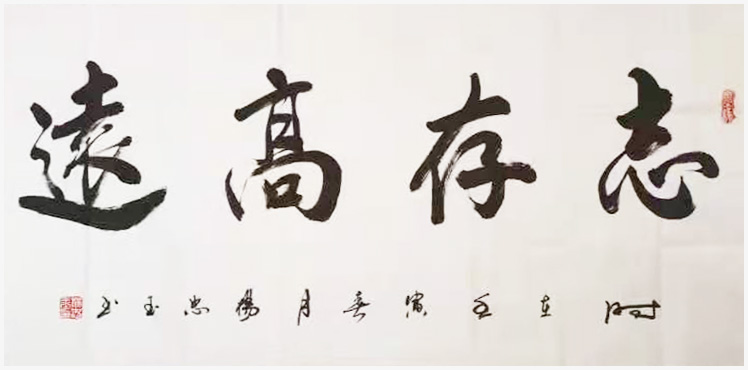 志存高遠
時在壬寅春月楊忠玉书